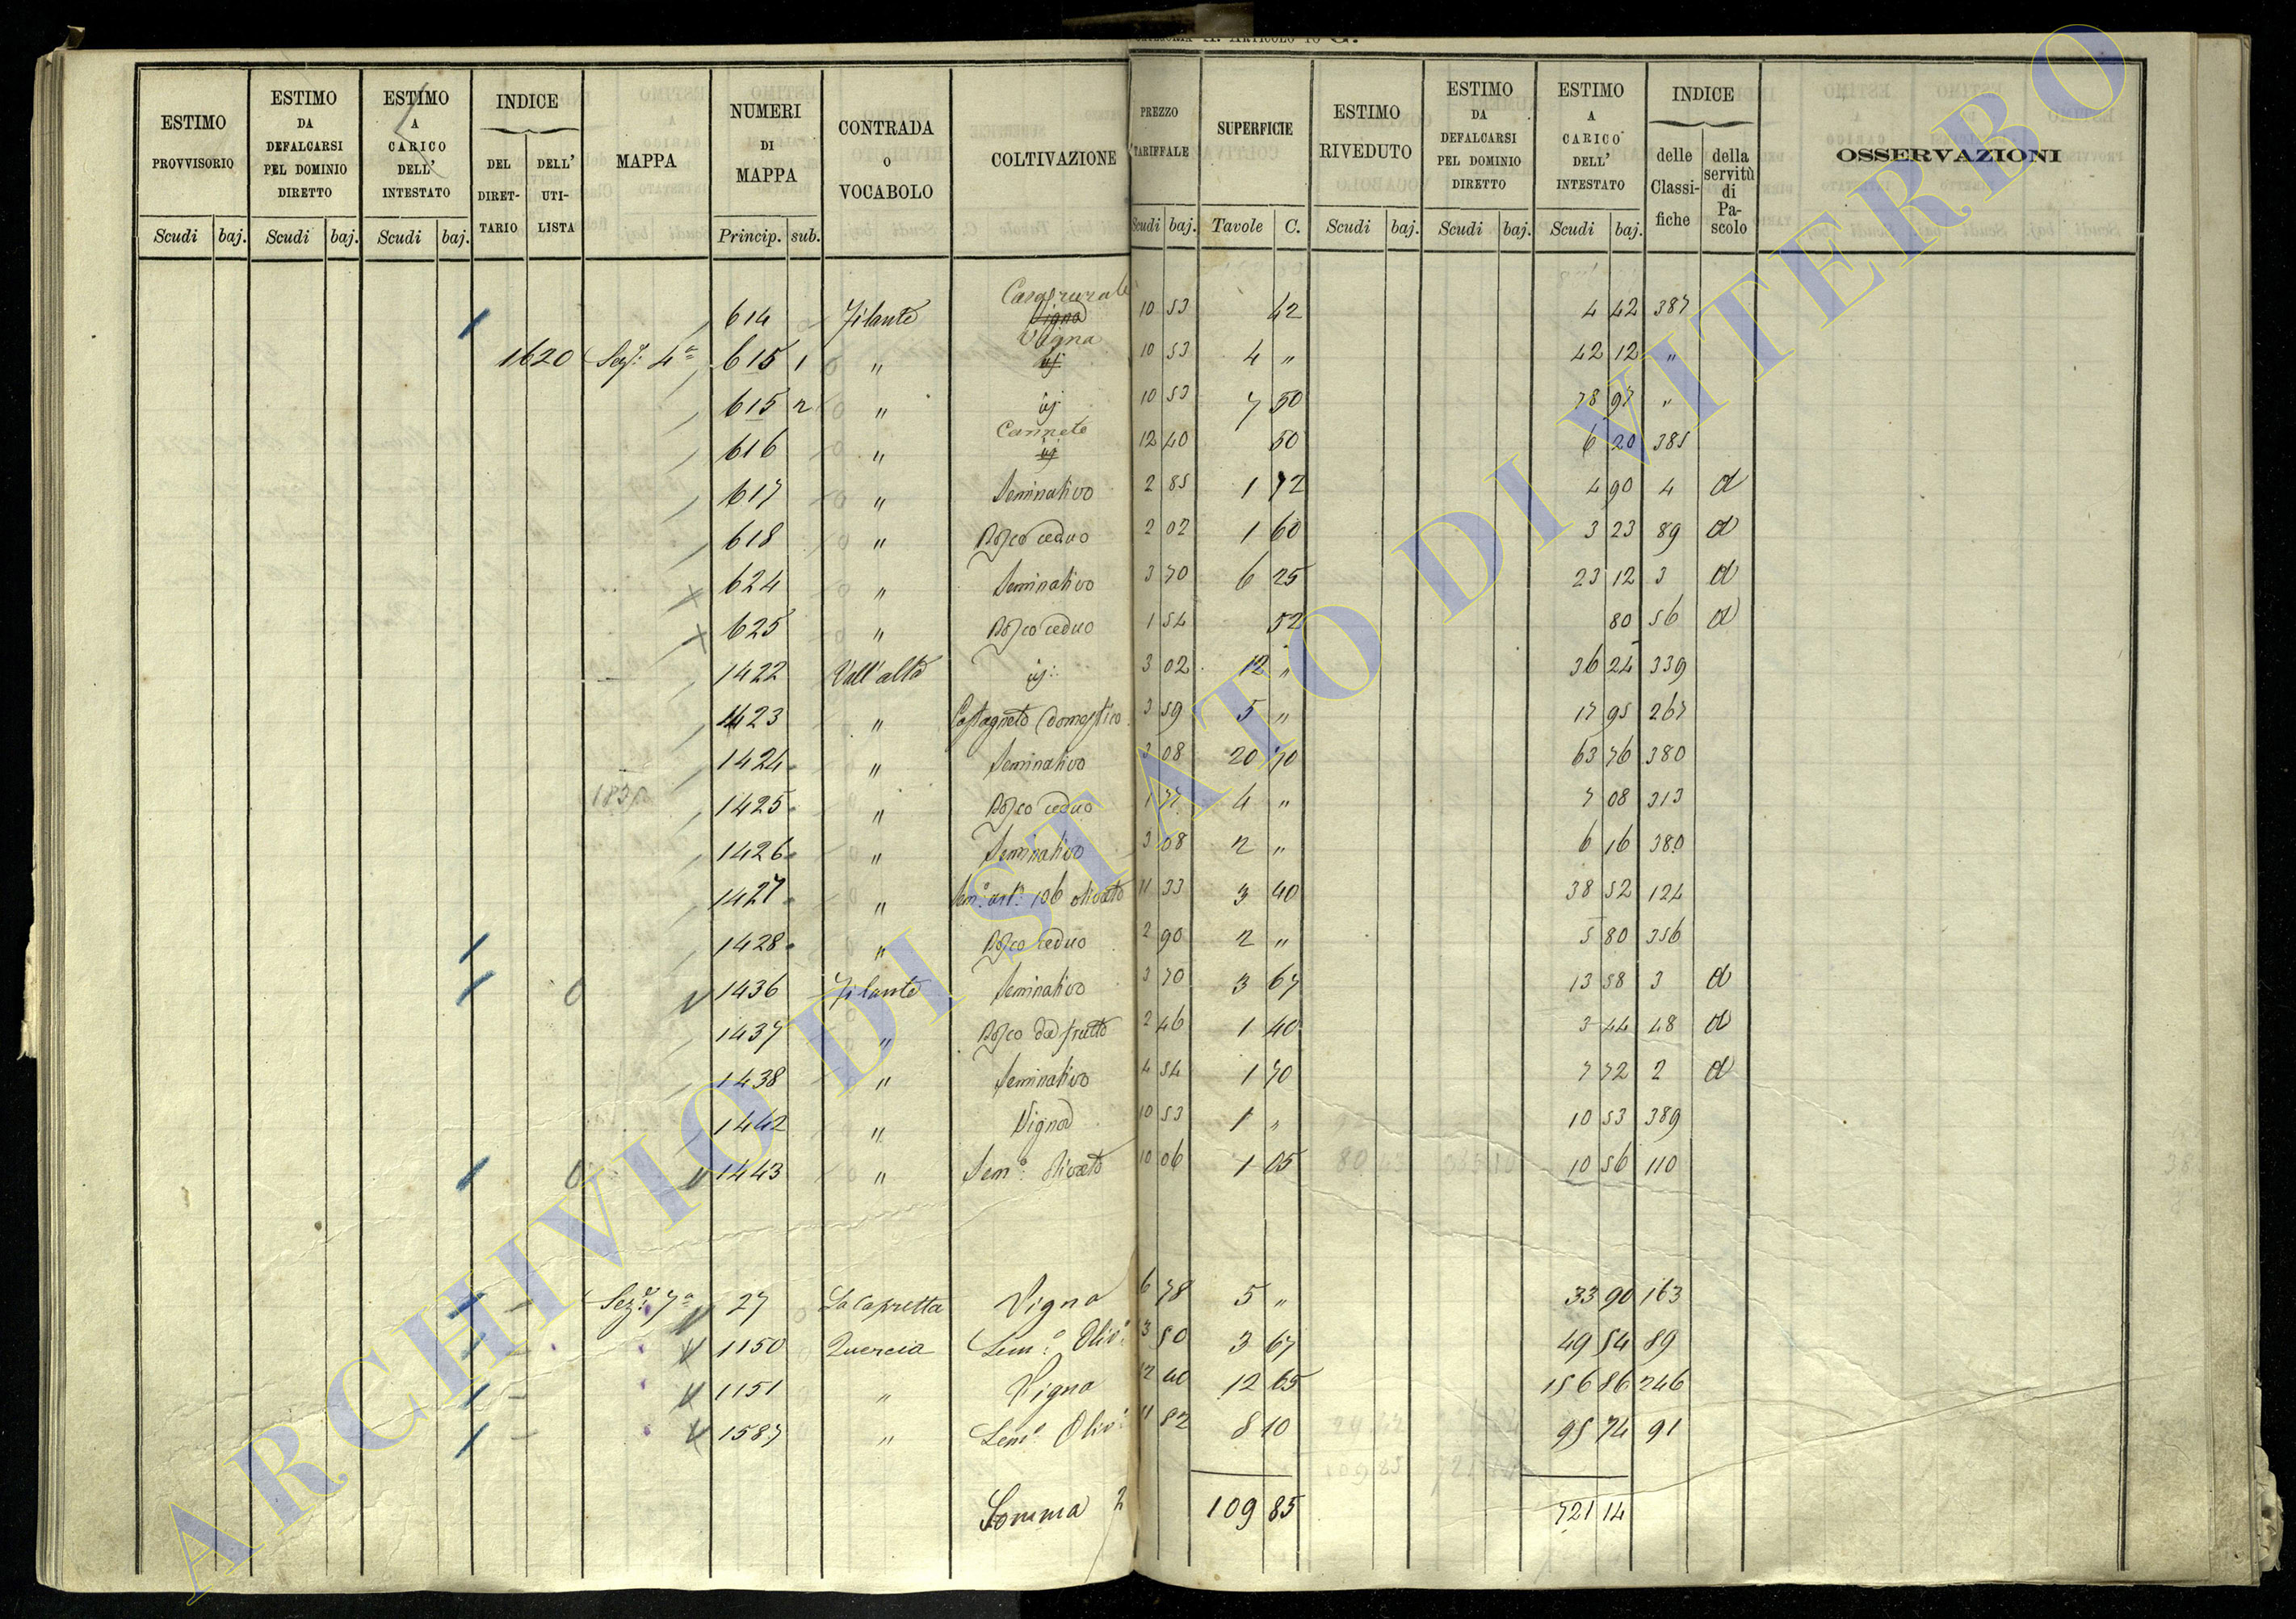 CATEGORIA A. ARTICOLO 10 G.
ESTIMO PROVVISORIO | ESTIMO DA DEFALCARSI PEL DOMINIO DIRETTO | ESTIMO A CARICO DELL' INTESTATO | INDICE | MAPPA | NUMERI DI MAPPA | CONTRADA O VOCABOLO | COLTIVAZIONE | PREZZO TARIFFALE | SUPERFICIE | ESTIMO RIVEDUTO | ESTIMO DA DEFALCARSI PEL DOMINIO DIRETTO | ESTIMO A CARICO DELL' INTESTATO | INDICE | OSSERVAZIONI
DEL DIRETTARIO | DELL' UTILISTA | delle Classifiche | della servitù di Pascolo
Scudi baj. | Scudi baj. | Scudi baj. | Princip. sub. | Scudi baj. | Tavole C. | Scudi baj. | Scudi baj. | Scudi baj.
614 Filante Casa rurale Vigna 10 53 42 4 42 387
1620 Sez: 4ª 615 1 " Vigna ij 10 53 4 " 42 12 "
615 2 " ij 10 53 7 50 78 97 "
616 " Canneto ij 12 40 50 6 20 385
617 " Seminativo 2 85 1 72 4 90 4 d
618 " Bosco ceduo 2 02 1 60 3 23 89 d
624 " Seminativo 3 70 6 25 23 12 3 d
625 " Bosco ceduo 1 54 52 80 56 d
1422 Vall'alta ij: 3 02 12 " 36 24 339
1423 " Castagneto domestico 3 59 5 " 17 95 267
1424 " Seminativo 3 08 20 70 63 76 380
1425 " Bosco ceduo 1 77 4 " 7 08 313
1426 " Seminativo 3 08 2 " 6 16 380
1427 " Sem.º art.º 106 olivato 11 33 3 40 38 52 124
1428 " Bosco ceduo 2 90 2 " 5 80 356
1436 Filante Seminativo 3 70 3 67 13 58 3 d
1437 " Bosco da frutto 2 46 1 40 3 44 48 d
1438 " Seminativo 4 54 1 70 7 72 2 d
1442 " Vigna 10 53 1 " 10 53 389
1443 " Sem.º olivato 10 06 1 05 10 56 110
Sez: 7ª 27 La Capretta Vigna 6 78 5 " 33 90 163
1150 Quercia Sem.º Oliv.º 3 50 3 67 49 54 89
1151 " Vigna 12 40 12 65 156 86 246
1587 " Sem.º Oliv.º 11 82 8 10 95 74 91
Somma 2 109 85 721 14
ARCHIVIO DI STATO DI VITERBO